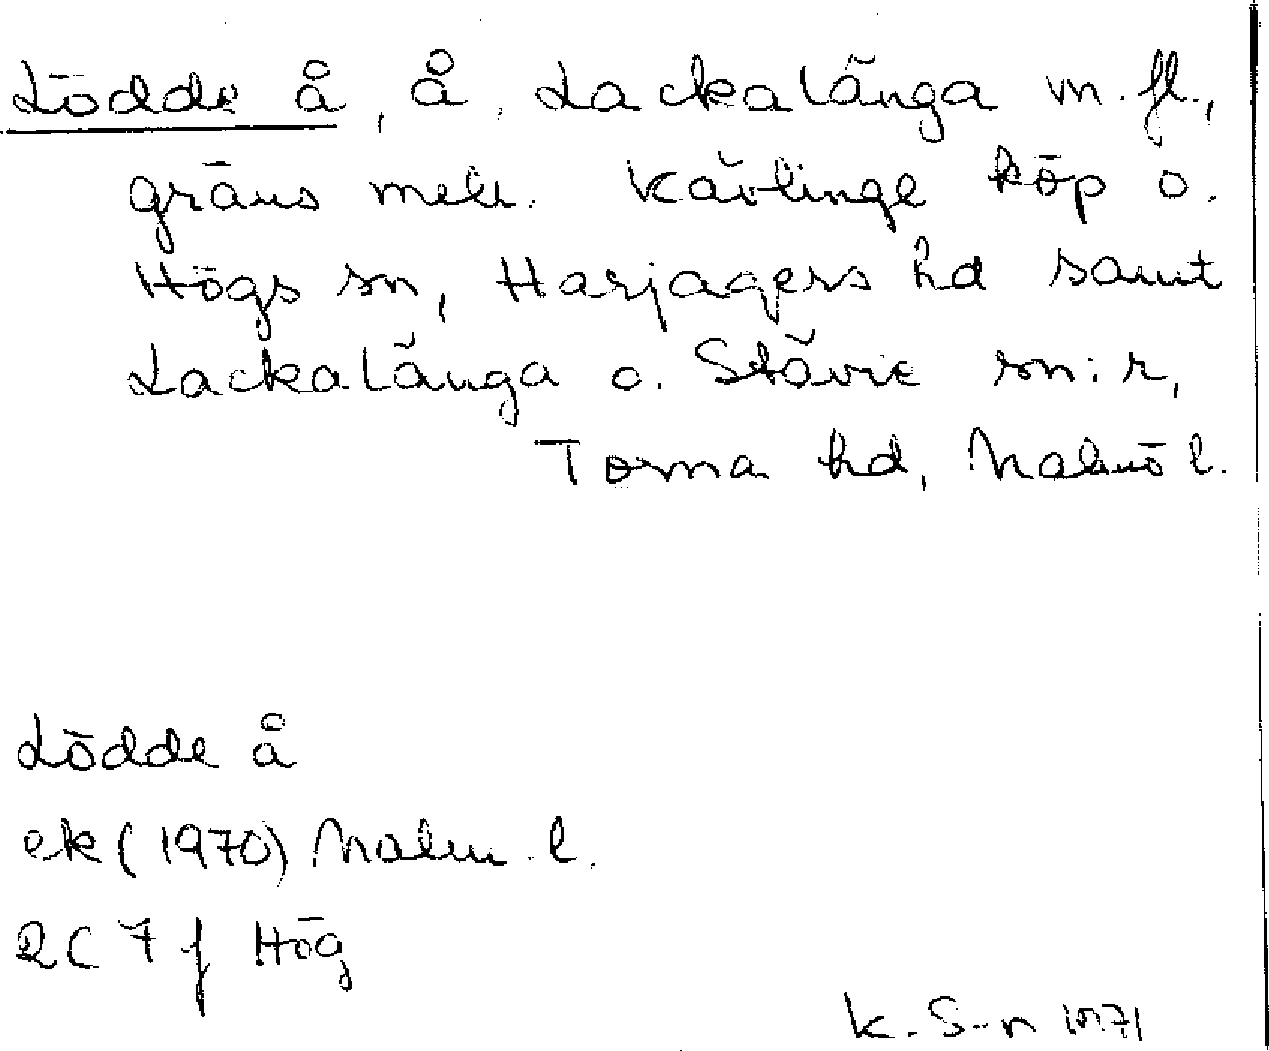 Lödde å, å, Lackalänga m.fl.,
gräns mell. Kävlinge köp o.
Högs sn, Harjagers hd samt
Lackalänga o. Stävie sn:r,
Torna hd, Malmö l.
Lödde å
ek (1970) Malm. l.
2C 7f Hög
K. S-n 1971